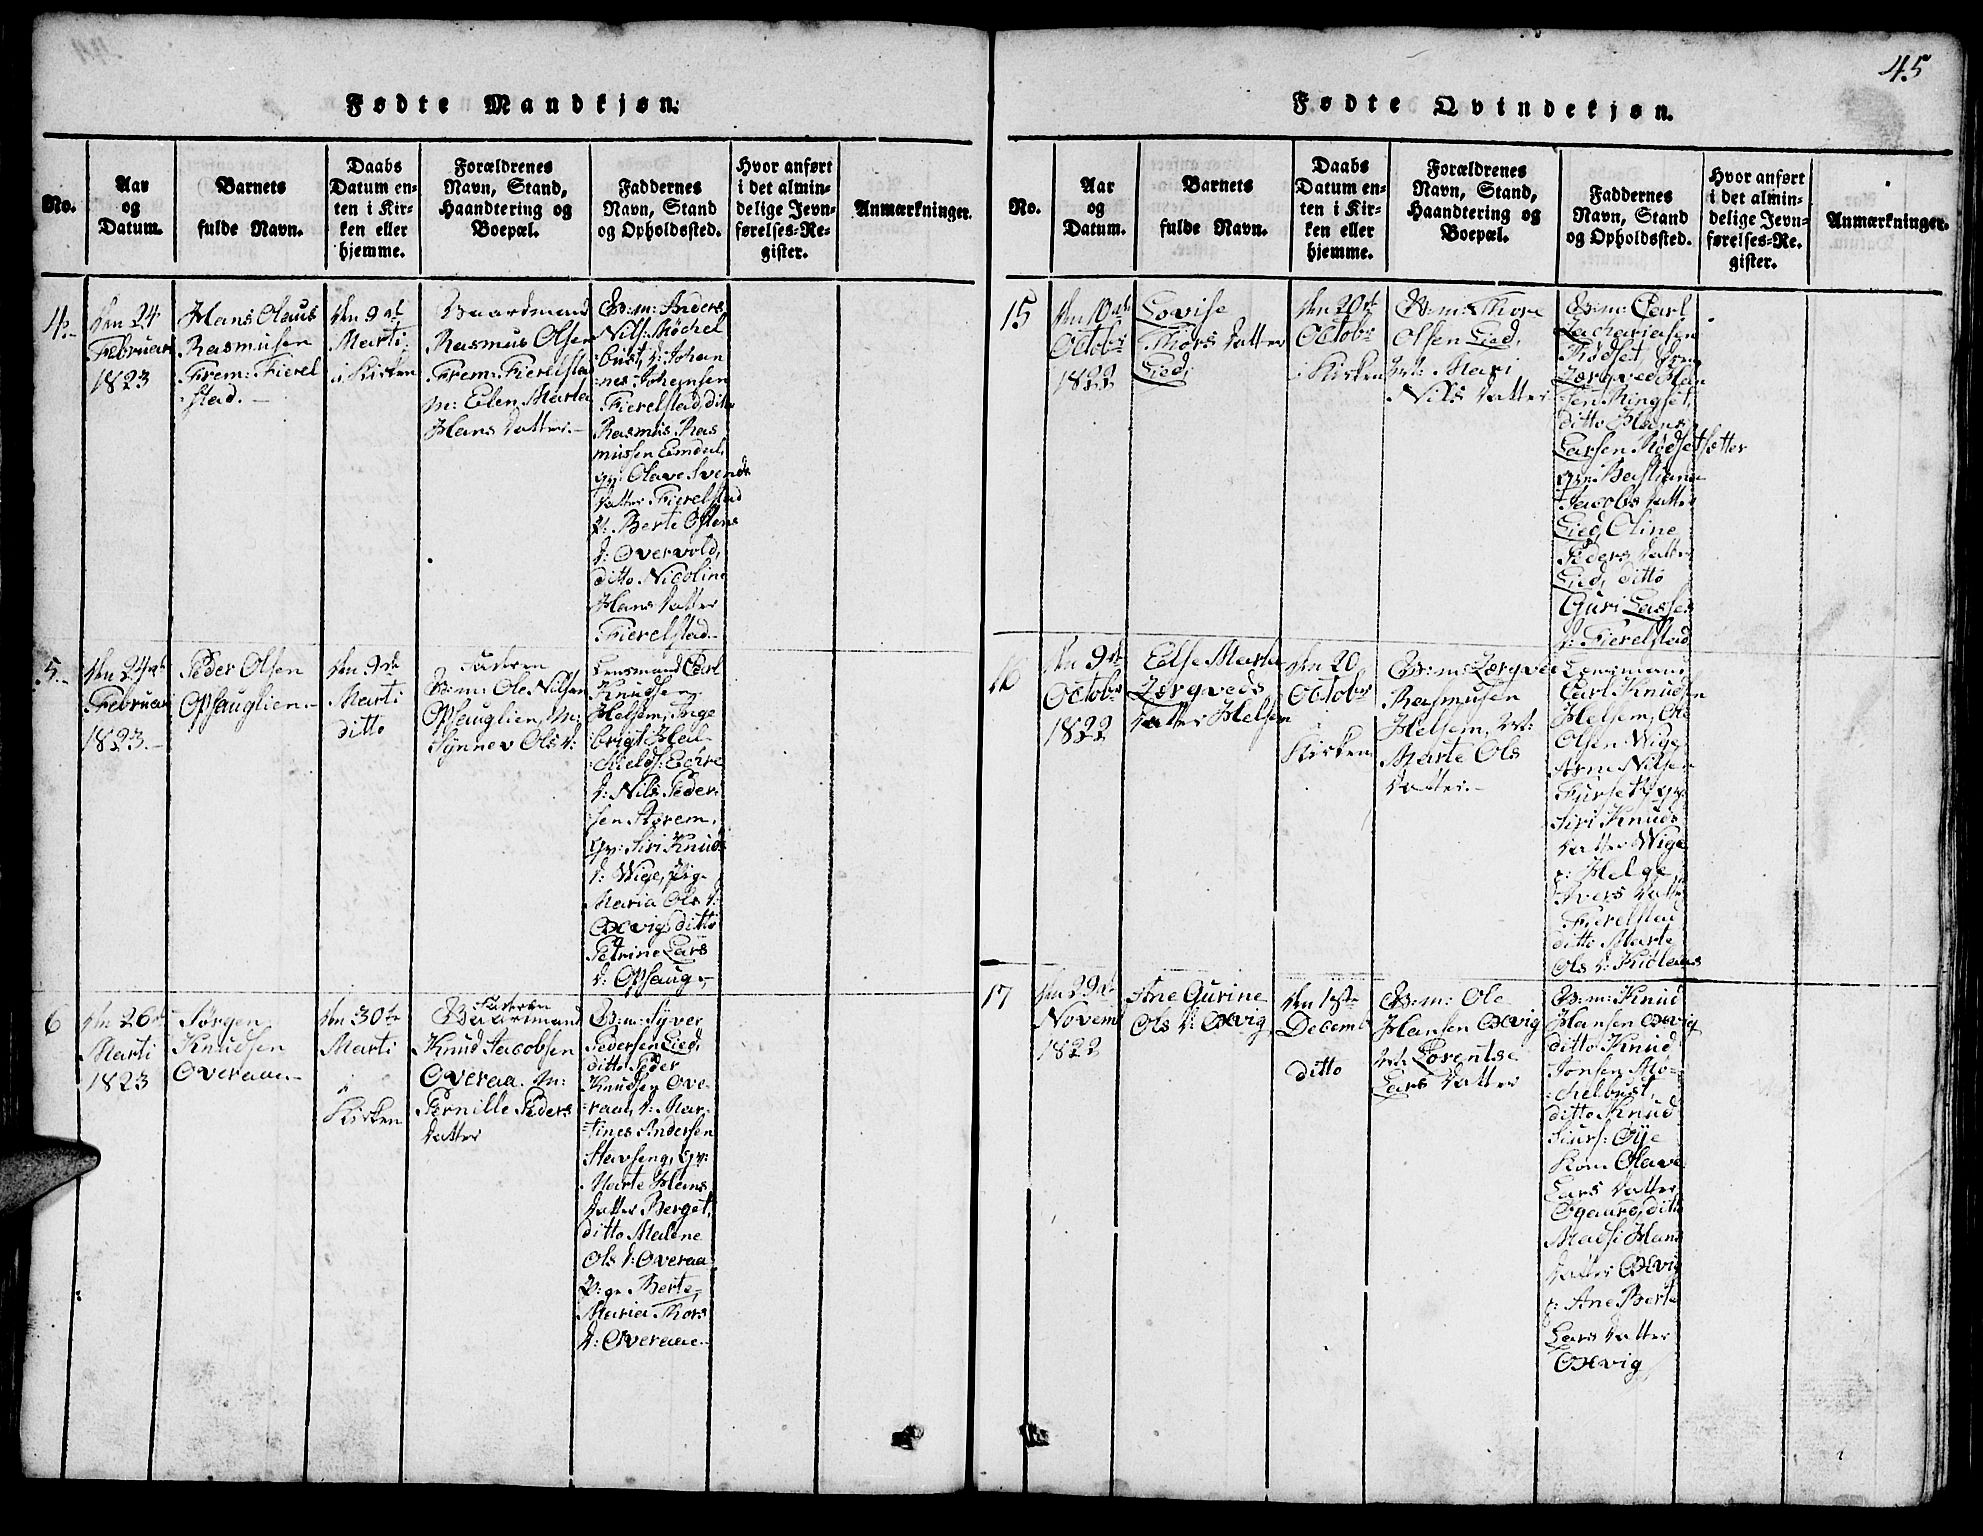 45
Fødte Mandkjøn.
No.
Aar
og
Datum.
Barnets
fulde Navn.
Daabs
Datum en-
ten i Kir-
ken eller
hjemme.
Forældrenes
Navn, Stand,
Haandtering og
Boepæl.
Faddernes
Navn, Stand
og Opholdssted.
Hvor anført
i det almin-
delige Jevn-
førelses-Re-
gister.
Anmærkninger.
4.-
den 24
Februar
1823
Hans Olaus
Rasmusen
Frem: Fierel
stad.-
den 9de
Marti
i Kirken
Baardmand
Rasmus Olsen
Frem: Fierelsta
M: Elen Marta
Hans datter.-
G: m: Anders
Nils: Møchel
bust, d: Johan
nes Johansen
Fierelstad, ditto
Rasmus Ras
mussen Eimdal,
gv: Olave Svends
datter Fierelstad
P: Berte Ostens
d: Overvold,
ditto Nicoline
Hans datter
Fierelstad.-
5.-
den 24de
Februar
1823.-
Peder Olsen
Opsauglien.-
den 9de
Marti
ditto
Faderen
G: m: Ole Nilsen
Opsauglien, M:
Synnev Ols d:
Lensmand Carl
Knudsen
Helsem, Inge
brigt Hal-
chields: Echre
d: Nils Peder-
sen Størem,
gv: Siri Knud
d: Wige, pig-
Maria Ols d:
Oxvig, ditto
Petrine Lars
d: Opsaug-
6
den 26de
Marti
1823
Jørgen
Knudsen
Overaae.-
den 30te
Marti
i
Kirken
Faderen
Baardmand
Knud Jacobsen
Overaa. M:
Pernille Peders
datter
G: m: Syver
Pedersen Lied,
ditto Peder
Knudsen Ove-
raae, d: Mar-
tines Andersen
Stavseng, gv:
Marte Hans
datter Berget,
ditto Malene
Ols d: Overaa
P: ge Berte
Maria Thors
d: Overaae.-
Fødte Qvindekjøn.
No.
Aar
og
Datum.
Barnets
fulde Navn.
Daabs
Datum en-
ten i Kir-
ken eller
hjemme.
Forældrenes
Navn, Stand,
Haandtering og
Boepæl.
Faddernes
Navn, Stand
og Opholdssted.
Hvor anført
i det almin-
delige Jevn-
førelses-Re-
gister.
Anmærkninger.
15
den 10de
Octobr
1822
Lovise
Thors datter
Lied,
den 20de
Octobr
i Kirken
G: m: Thore
Olsen Lied,
M: Mari
Nils datter
G: m: Carl
Zachariasen
Rødset, dreng
Zergved Han
sen Ringset,
ditto Hans
Larsen Rødsetsætter
gv: Bastiana
Jacobs datter
Lied, Oline
Peders datter
Lied, ditto
Guri Lasses
d: Fierelstad
16
den 9de
Octobr
1822
Else Marta
Zergveds
datter Helsem
den 20
Octobr
i
Kirken
G: m: Zergved
Rasmusen
Helsem, M:
Marte Ols
datter.-
Lensmand
Carl Knudsen
Helsem, Ole
Olsen Wige
Arne Nilsen
Furset, gv:
Siri Knuds
datter Wige
p: Helge
Ivers datter
Fierelstad
ditto Marte
Ols d: Kiølaas
17
den 29de
Novemb
1822
Ane Gurine
Ols d: Oxvig
den 1ste
Decemb
ditto
G: m: Ole
Hansen Oxvig
M: Lorentse
Lars datter
G: m: Knud
Hansen Oxvig
ditto Knud
Jonsen Mø-
chelbust,
ditto Knud
Siurs: Øye
Kone Olave
Lars datter
Øgaard, ditto
Madsi Hans
datter Oxvig
p: Ane Berte
Lars datter
Oxvig